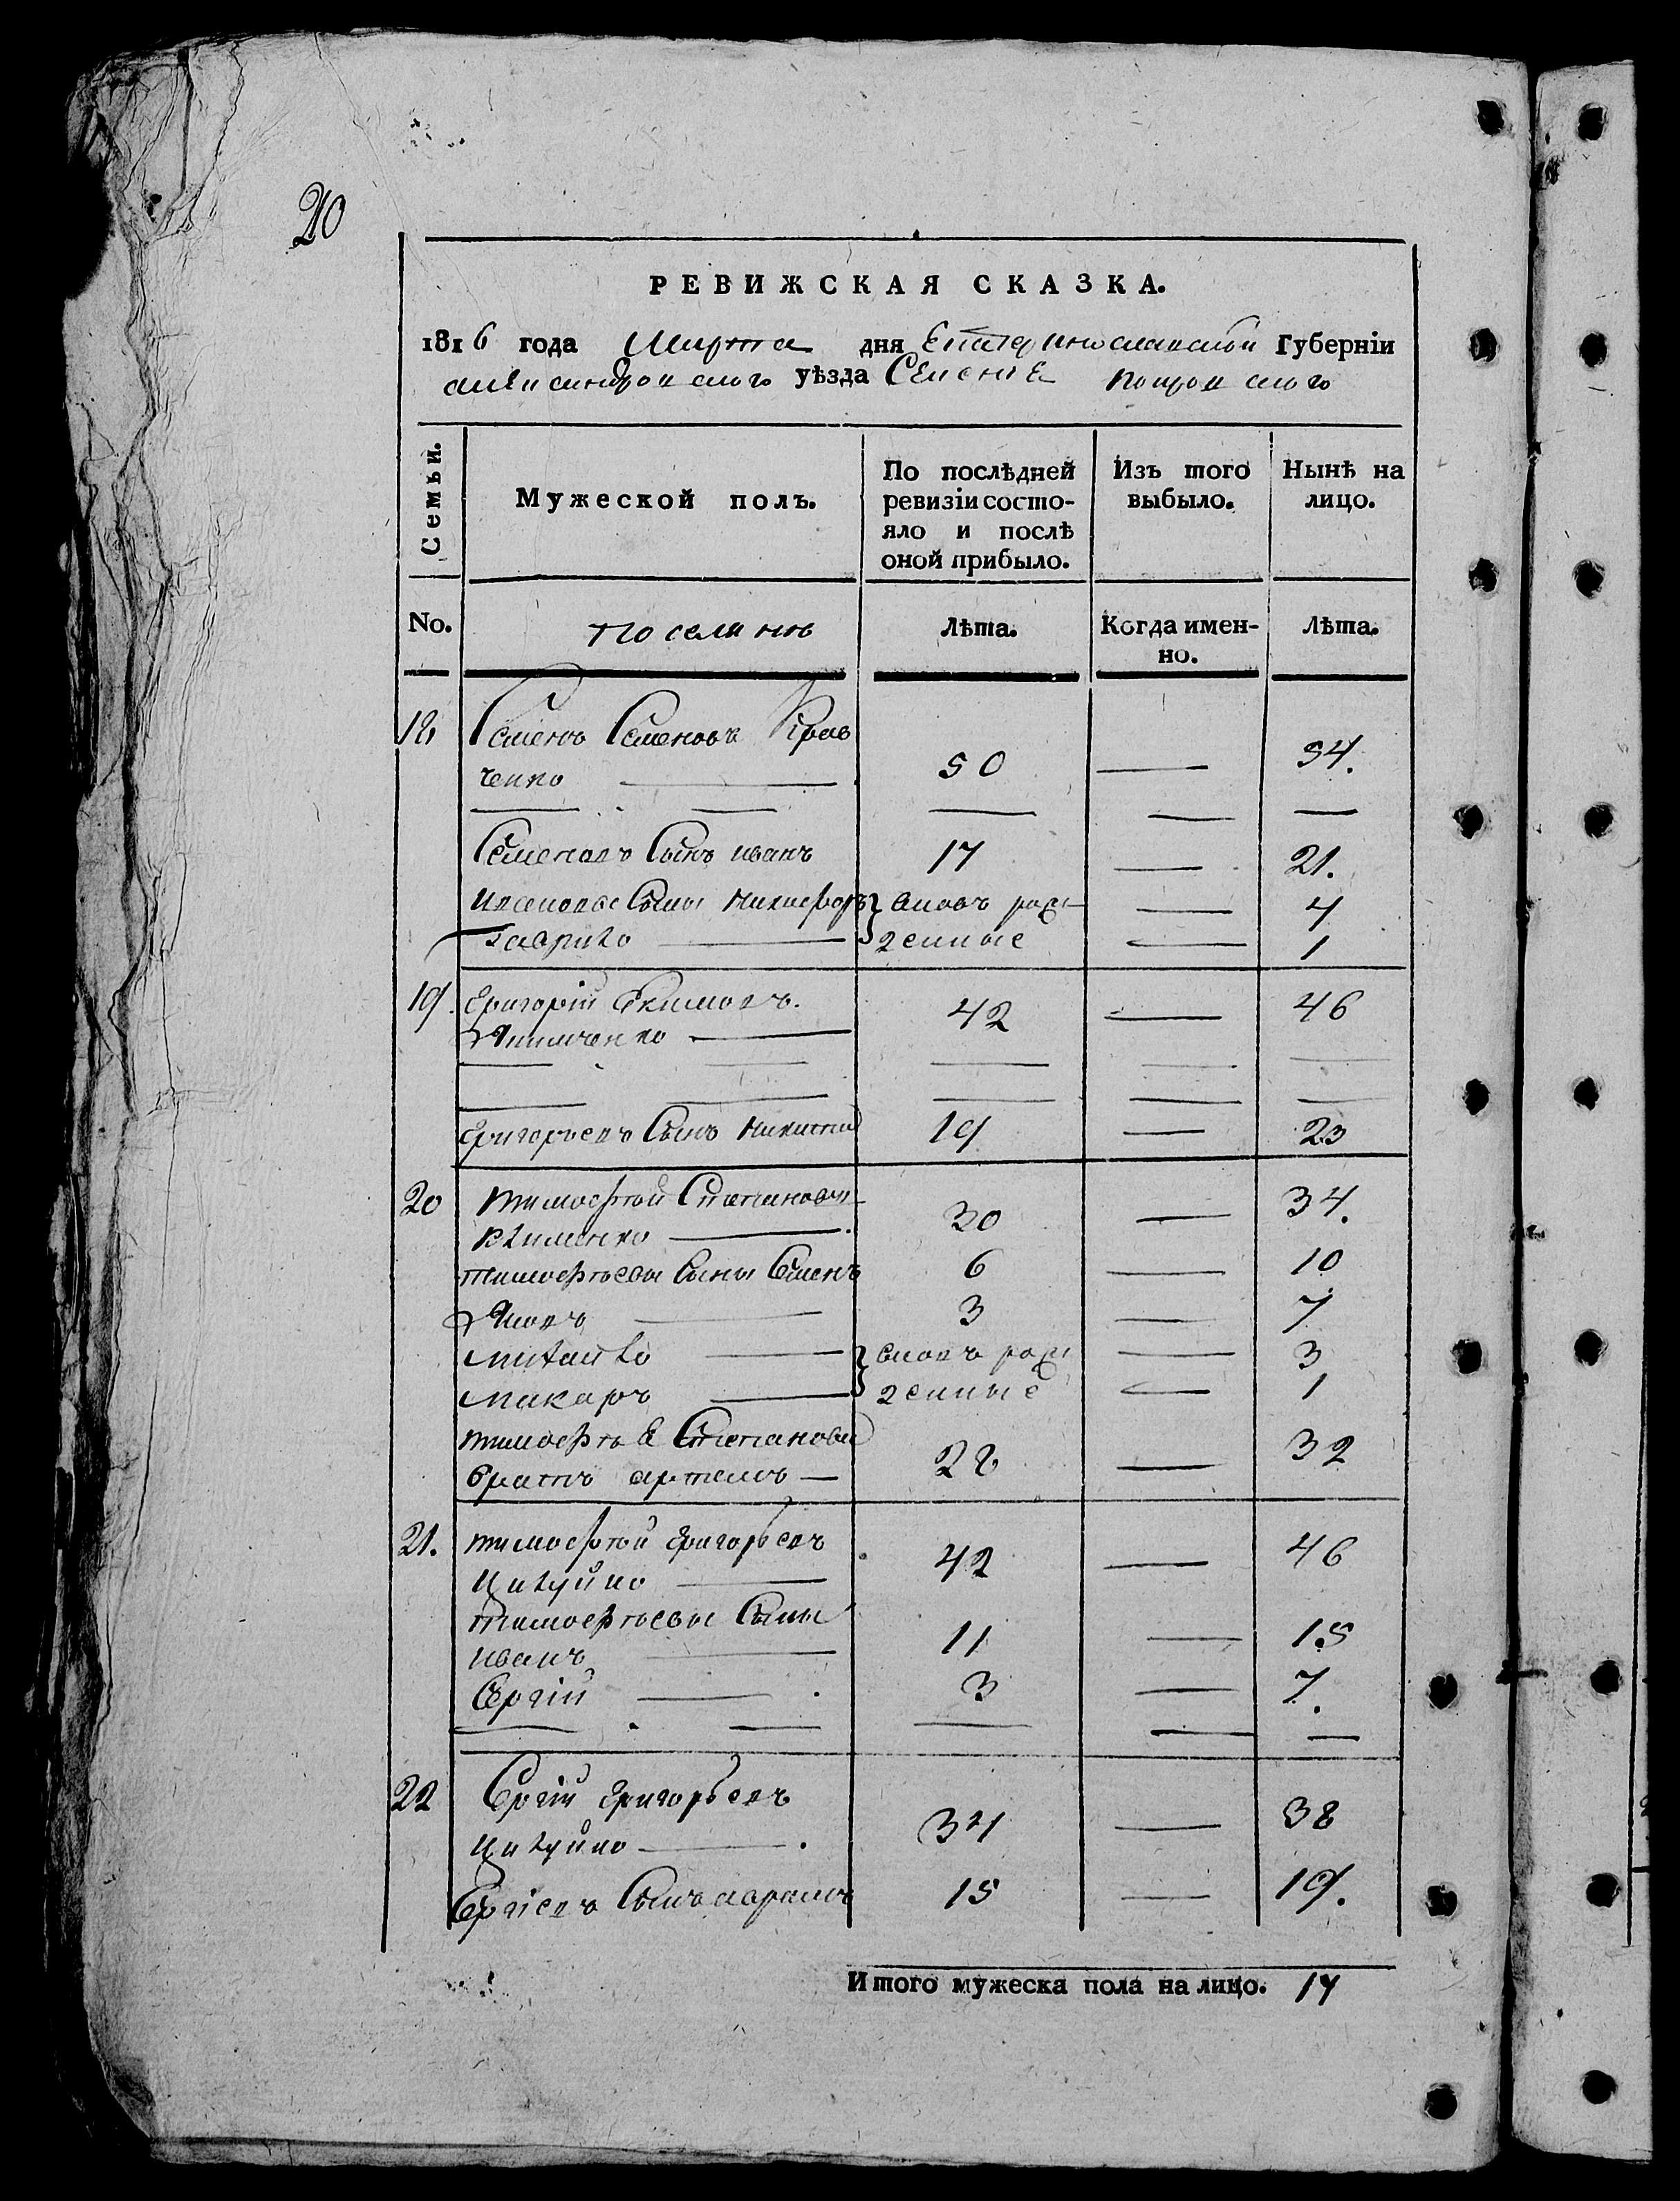 20
РЕВИЖСКАЯ СКАЗКА.
1816 года Марта дня Екатеринославской Губерніи
александровского уѣзда Селение Покровского
Семьи.
Мужеской полъ.
По послѣдней ревизіи состо-
яло и послѣ
оной прибыло.
Изъ того
выбыло.
Нынѣ на
лицо.
No.
поселянъ
Лѣта.
Когда имен-
но.
Лѣта.
18 Семенъ Семеновъ Крав
ченко 50 54.
Семеновъ Сынъ иванъ 17 21.
Ивановы Сыны Никифоръ вновь рож 4
Гаврило денные 1
19. Григорій Екимовъ.
Якименко 42 46
Григорьевъ Сынъ Никита 19 23
20 тимофей Степановъ
Клименко 30 34.
тимофеевы Сыны Семенъ 6 10
Яковъ 3 7
михайло вновь рож 3
макаръ денные 1
тимофея Степанова
братъ артемъ 28 32
21. тимофей Григорьевъ
42 46
тимофеевы Сыны
иванъ 11 15
Сергій 3 7.
22 Сергій Григорьевъ
34 38
Сергіевъ Сынъ 15 19.
Итого мужеска пола на лицо. 17